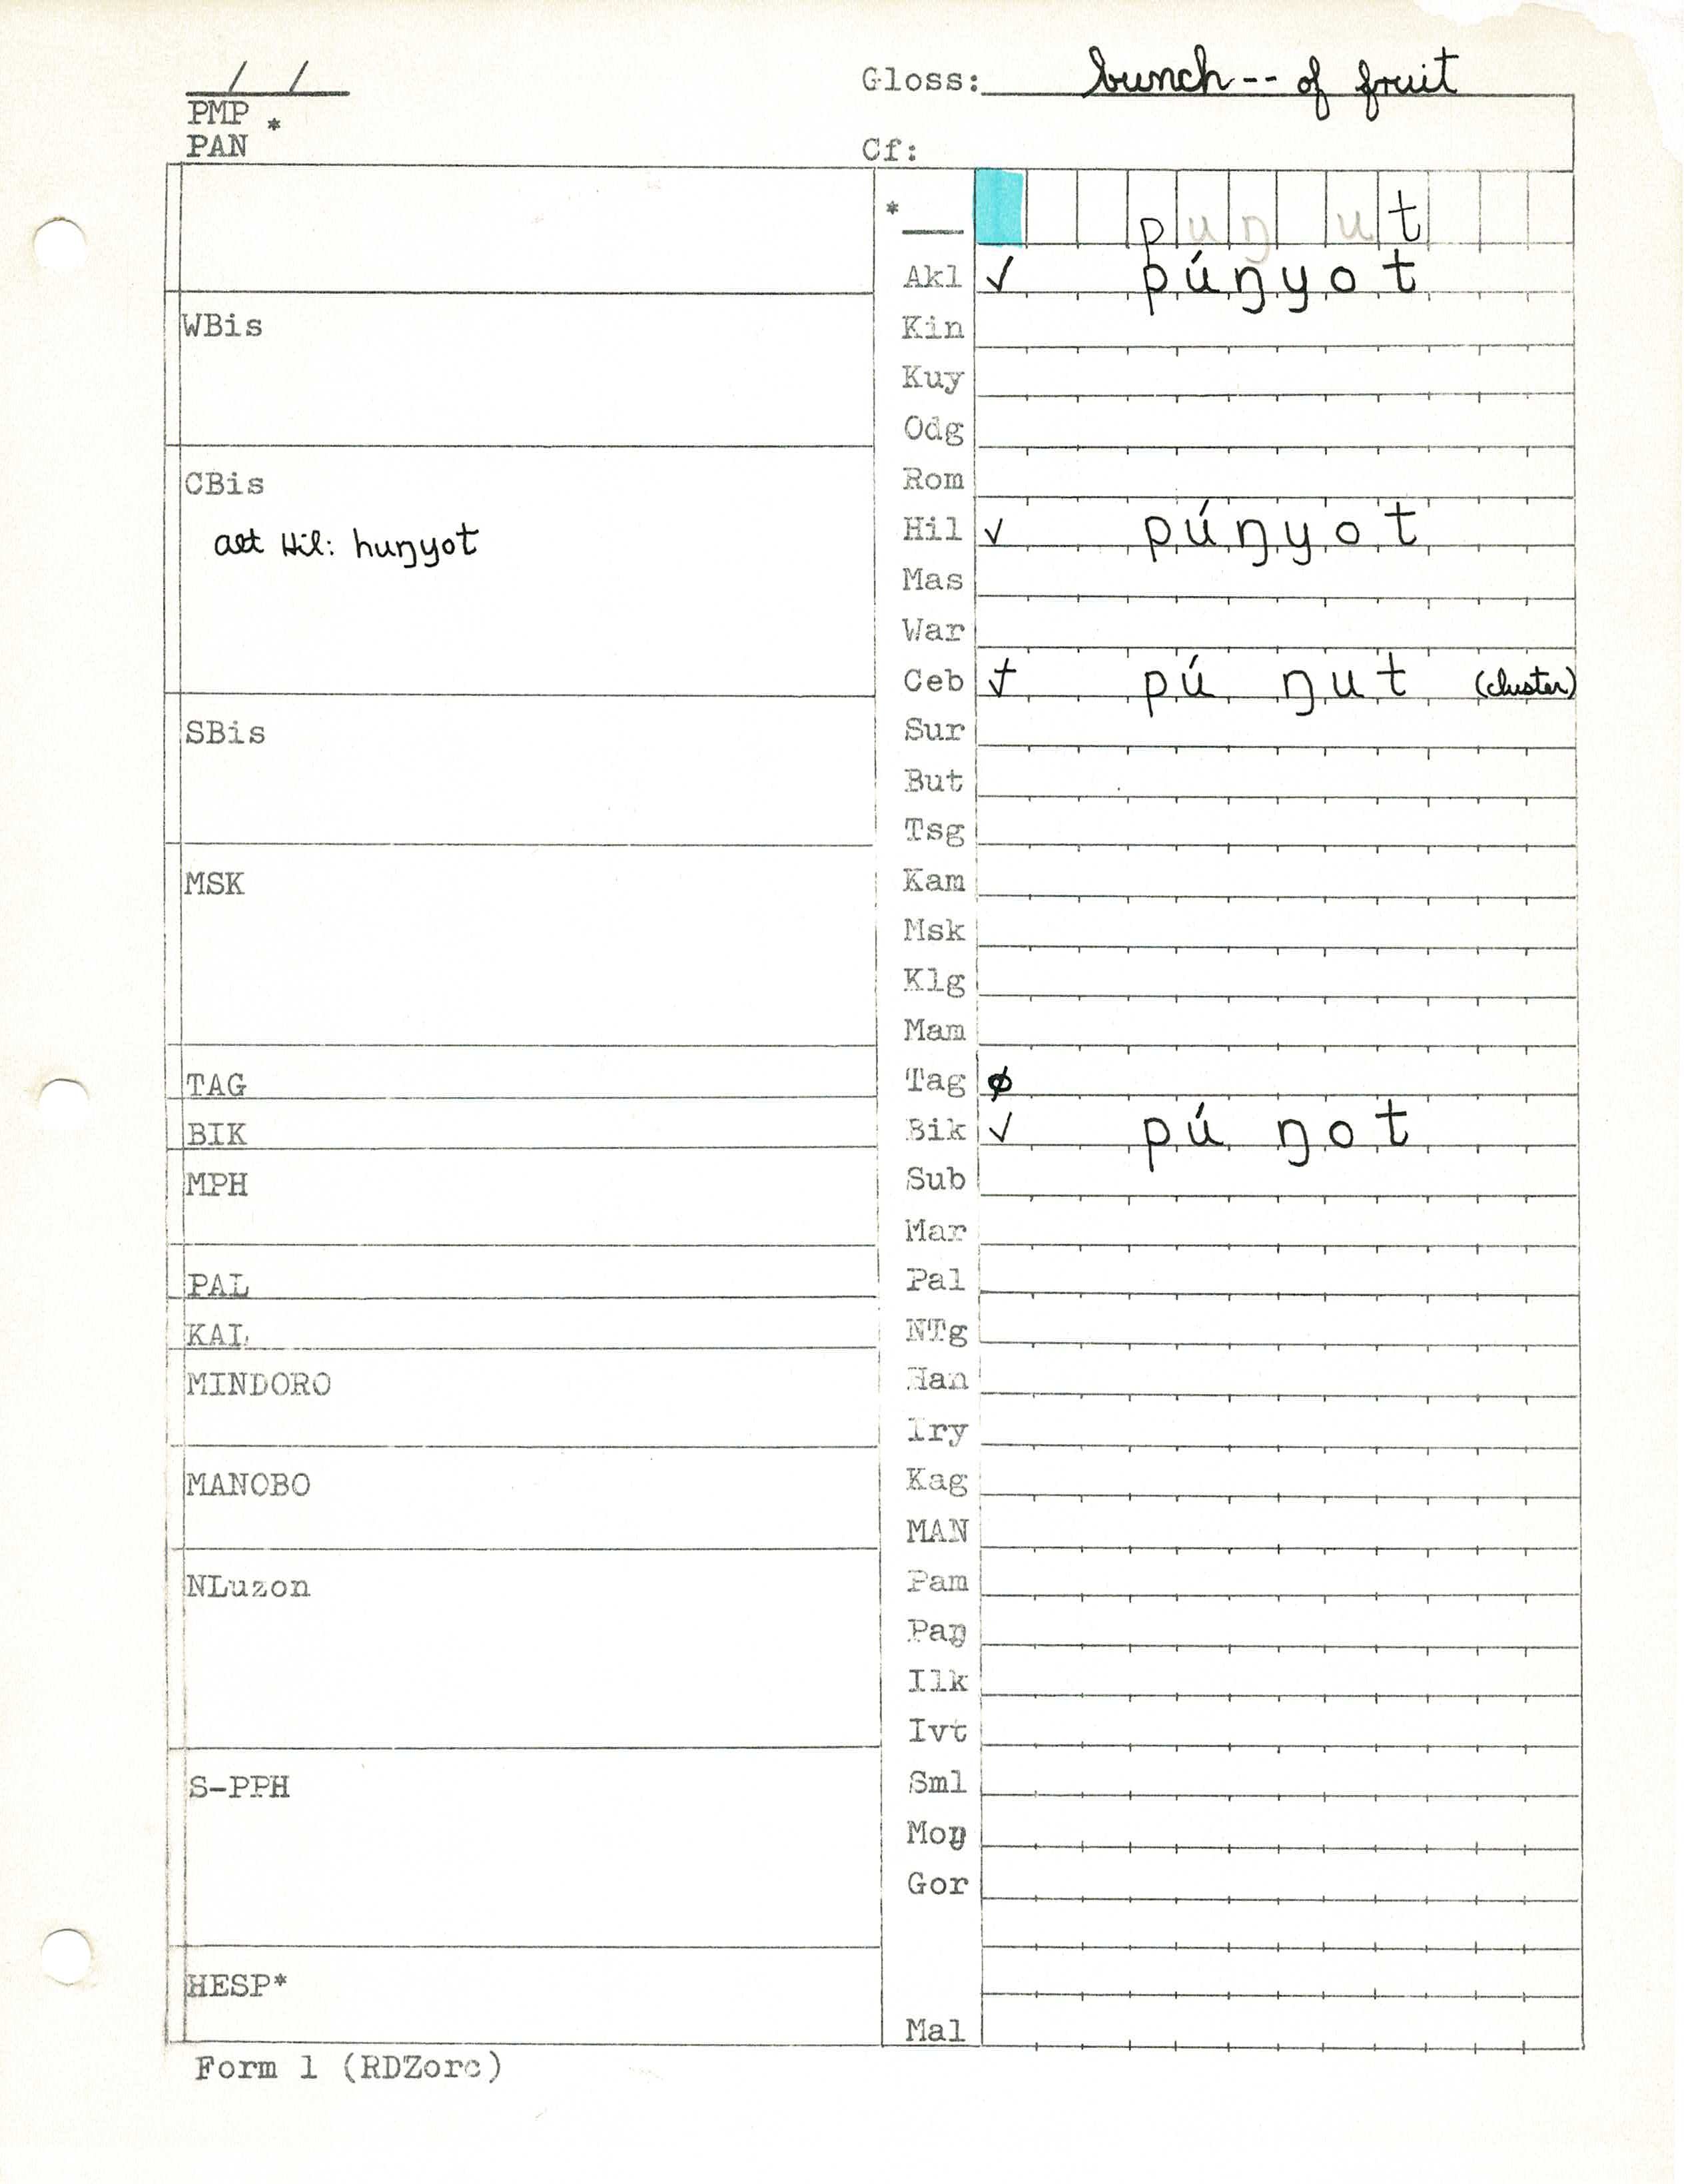 / /
Gloss: bunch -- of fruit
PMP *
PAN
Cf:
* p u ŋ u t
Akl ✓ púŋyot
WBis
Kin
Kuy
Odg
CBis
Rom
alt Hil: huŋyot
Hil ✓ púŋyot
Mas
War
Ceb ✓ pú ŋut (cluster)
SBis
Sur
But
Tsg
MSK
Kam
Msk
Klg
Mam
TAG
Tag ø
BIK
Bik ✓ pú ŋot
MPH
Sub
Mar
PAL
Pal
KAL
NTg
MINDORO
Han
Iry
MANOBO
Kag
MAN
NLuzon
Pam
Paŋ
Ilk
Ivt
S-PPH
Sml
Moŋ
Gor
HESP*
Mal
Form 1 (RDZorc)